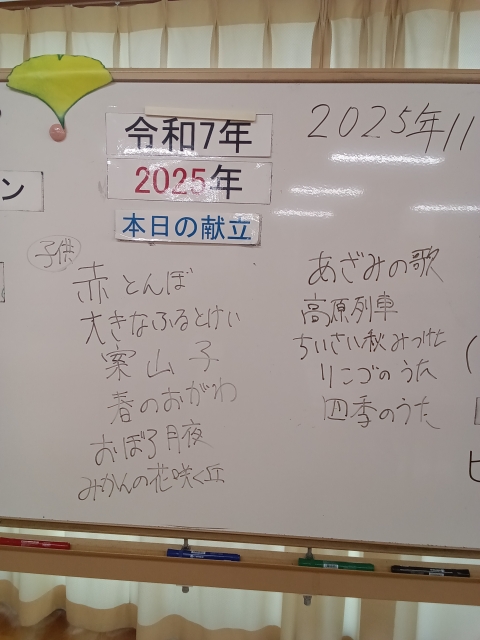 令和7年
2025年
本日の献立
2025年11
ン
子供
赤とんぼ
大きなふるとけい
案山子
春のおがわ
おぼろ月夜
みかんの花咲く丘
あざみの歌
高原列車
ちいさい秋みつけた
リンゴのうた
四季のうた